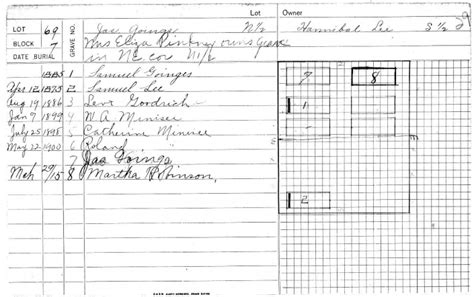 LOT 69 Jas Goinges N½ Lot Owner Hannibal Lee S ½
BLOCK 7 Mrs Eliza Pinkney owns Grave
DATE BURIAL GRAVE NO. in NE cor N½
1 Samuel Goinges
Apr 12 1873 2 Samuel Lee
Aug 19 1886 3 Levi Goodrich
Jan 7 1899 4 W A Meniser
July 25 1898 5 Catherine
May 12 1900 6 Roland
7 Jas Goings
Mch 29/15 8 Martha Robinson,
7 8
1
2